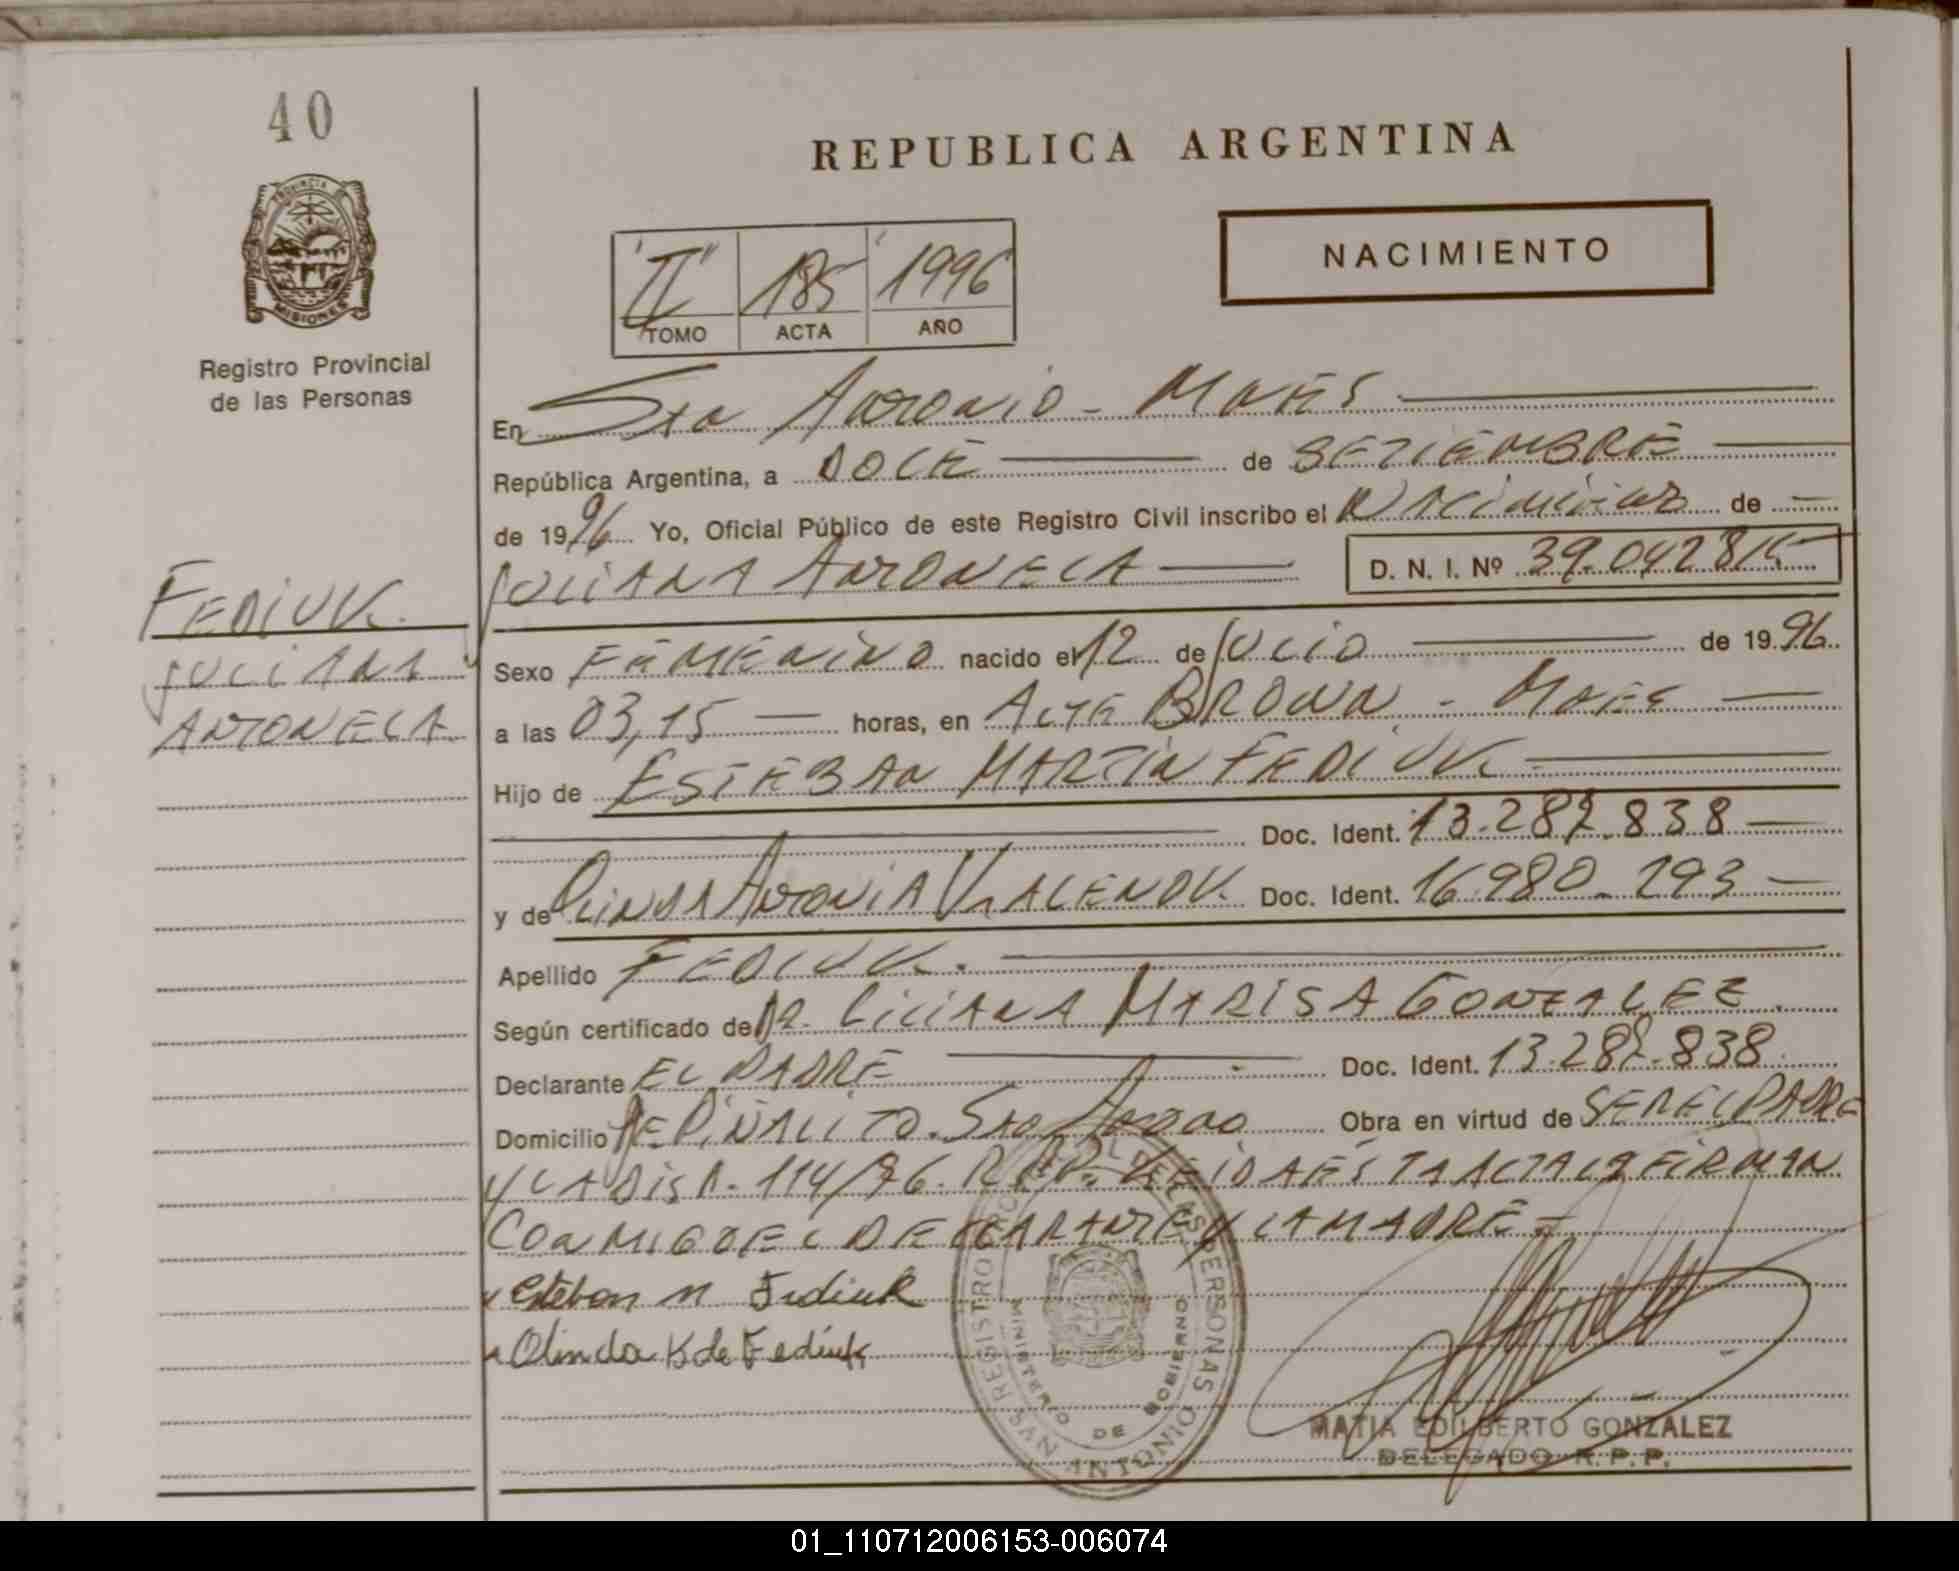 40
REPUBLICA ARGENTINA
NACIMIENTO
"II" 185 1996
TOMO ACTA AÑO
PROVINCIA DE
MISIONES
Registro Provincial
de las Personas
En Sto Antonio - Mnes
República Argentina, a DOCE de SETIEMBRE
de 1996 Yo, Oficial Público de este Registro Civil inscribo el Nacimiento de
JULIANA ANTONELA D. N. I. Nº 39.042.815
FEDIUK
JULIANA
ANTONELA
Sexo FEMENINO nacido el 12 de JULIO de 1996
a las 03,15 horas, en ALTE BROWN - Mnes
Hijo de ESTEBAN MARTIN FEDIUK
Doc. Ident. 13.287.838
y de OLINDA ANTONIA Doc. Ident. 16.980.293
Apellido FEDIUK.
Según certificado de Dra. LILIANA MARISA GONZALEZ.
Declarante EL PADRE Doc. Ident. 13.287.838
Domicilio DE PIÑALITO. Sto Antonio Obra en virtud de SER EL PADRE
Y LA DISP. 114/96. R.P.P. LEIDA ESTA ACTA LA FIRMAN
CONMIGO EL DECLARANTE Y LA MADRE -
Esteban M Fediuk
Olinda K de Fediuk
REGISTRO PROVINCIAL DE LAS PERSONAS
MINISTERIO DE GOBIERNO
ANTONIO
MATIA EDILBERTO GONZALEZ
DELEGADO R.P.P.
01_110712006153-006074